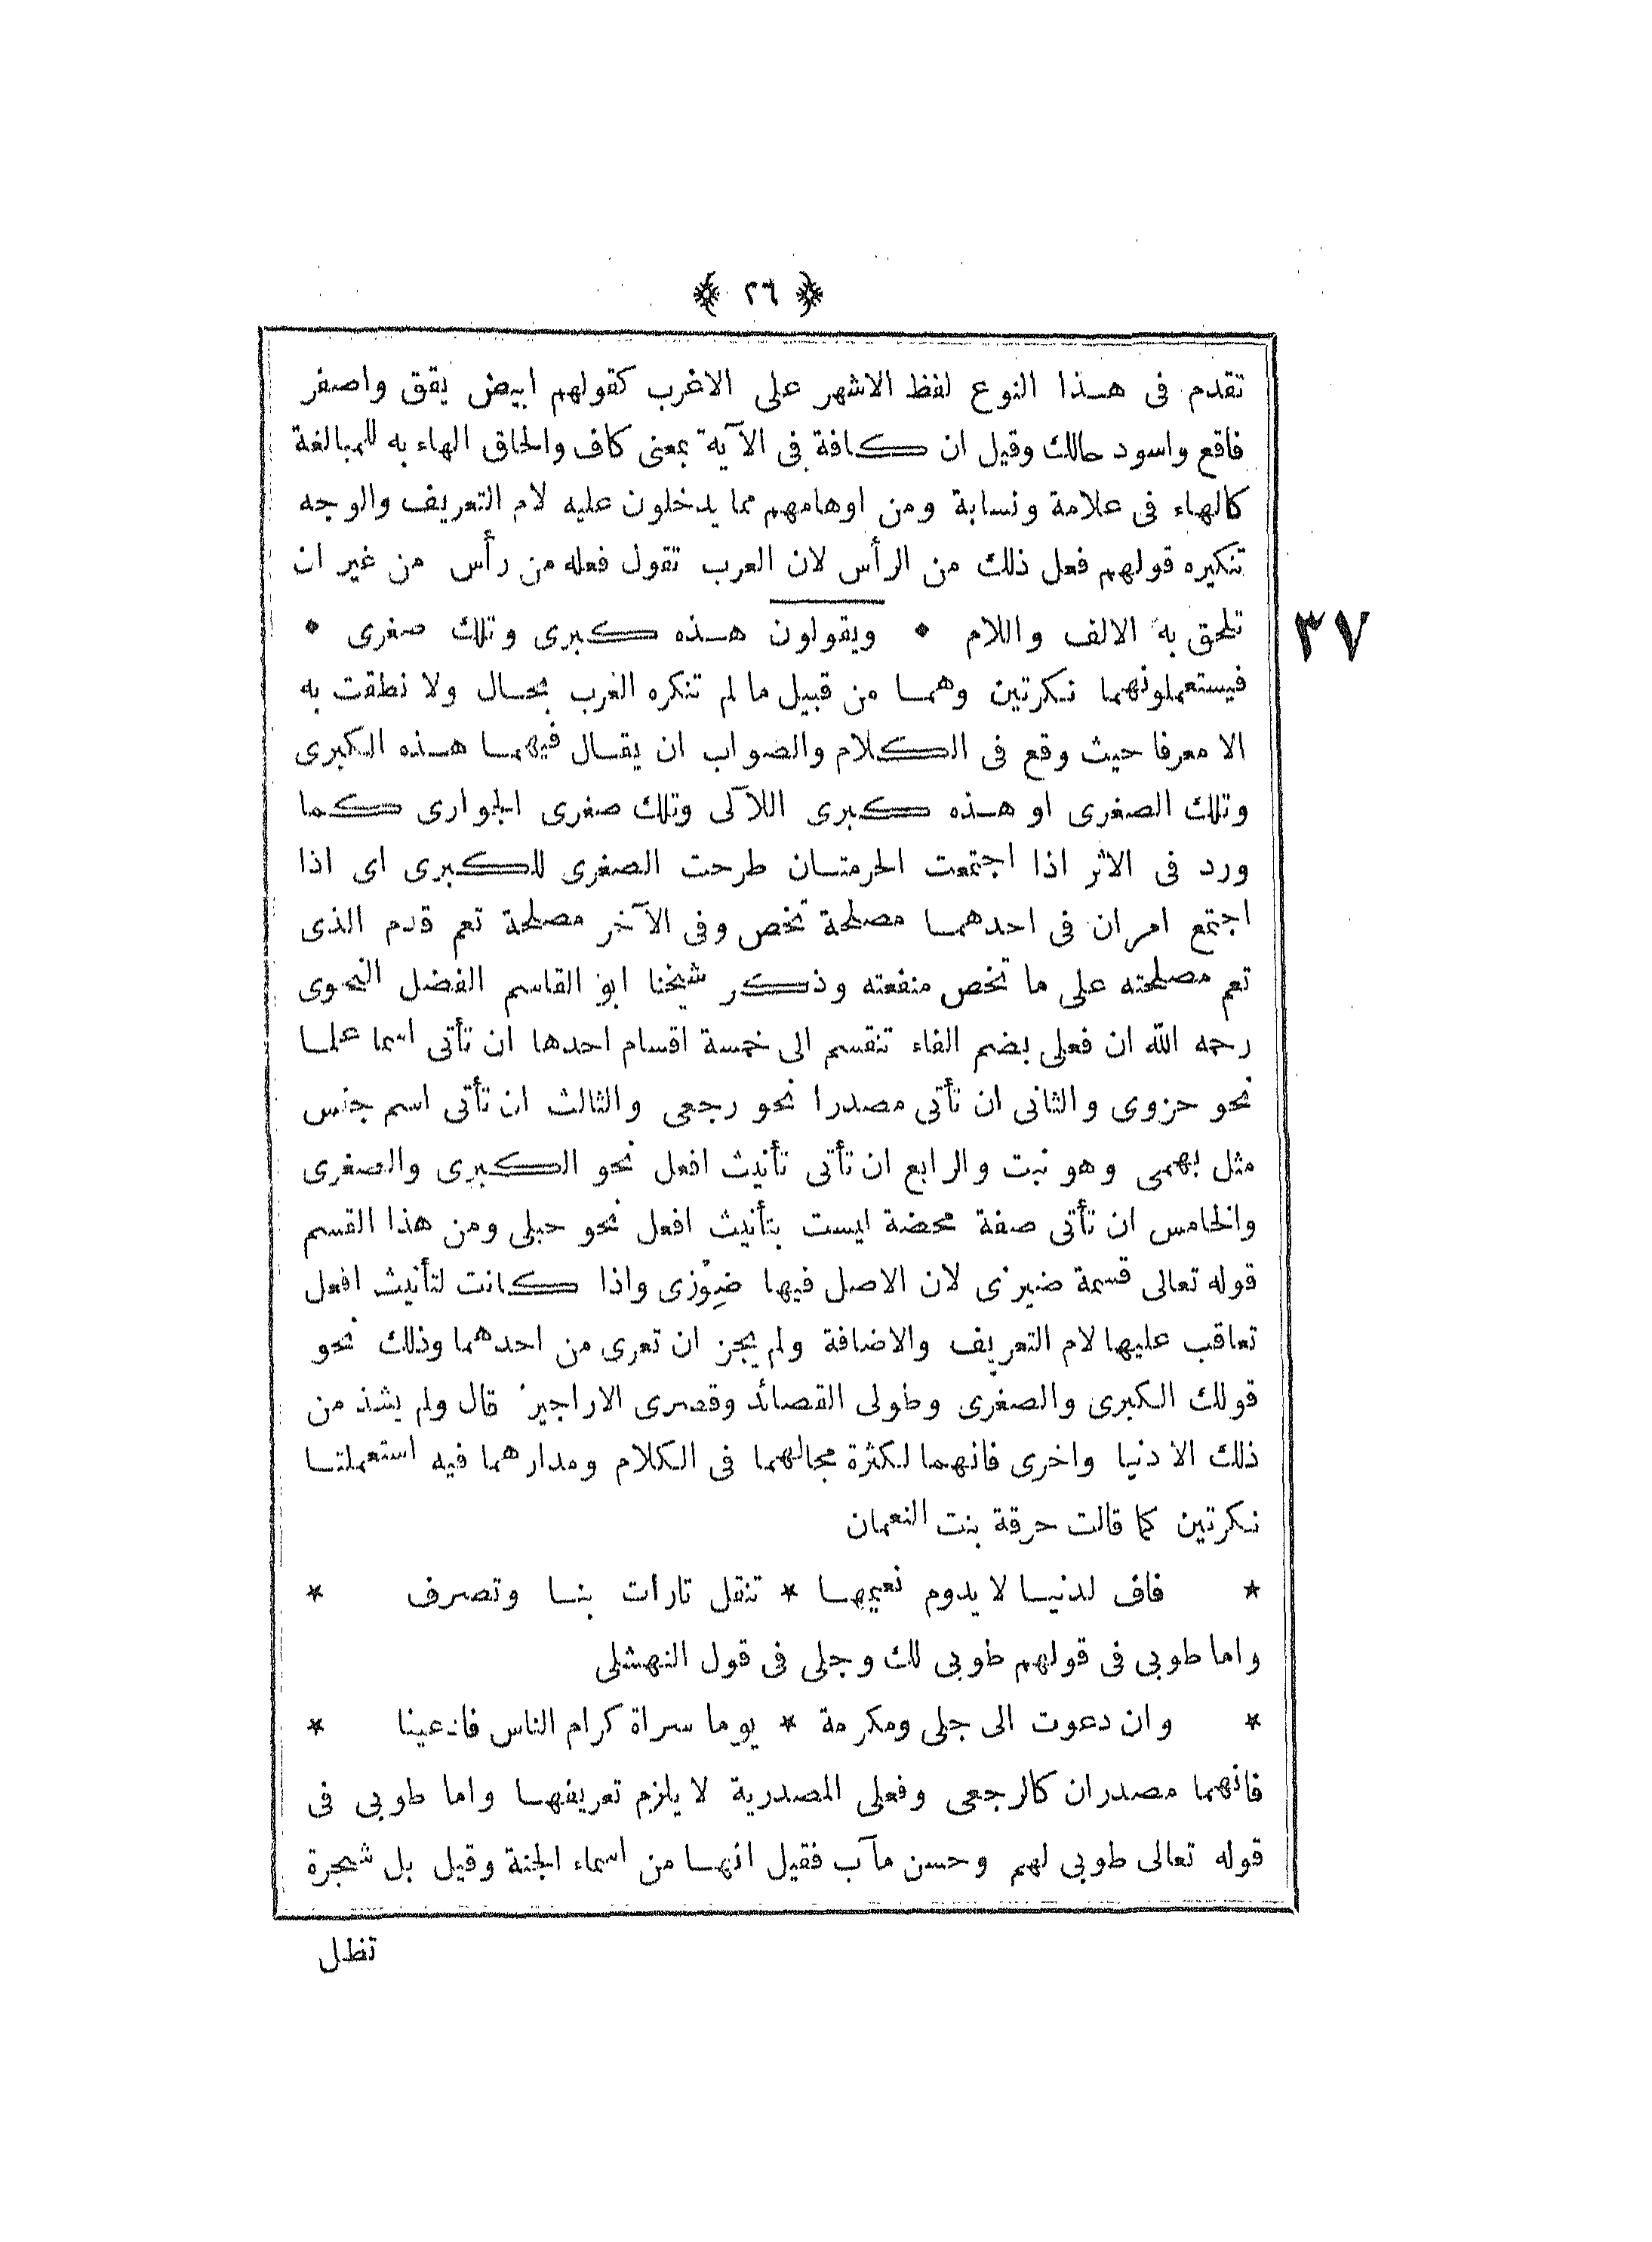 ﴿ ٢٦ ﴾
تقدم فى هذا النوع لفظ الاشهر على الاغرب كقولهم ابيض يقق واصفر
فاقع واسود حالك وقيل ان كافة فى الآية بمعنى كاف والحاق الهاء به للمبالغة
كالهاء فى علامة ونسابة ومن اوهامهم مما يدخلون عليه لام التعريف والوجه
تنكيره قولهم فعل ذلك من الرأس لان العرب تقول فعله من رأس من غير ان
تلحق به الالف واللام • ويقولون هذه كبرى وتلك صغرى •
٣٧
فيستعملونهما نكرتين وهما من قبيل ما لم تنكره العرب بحال ولا نطقت به
الا معرفا حيث وقع فى الكلام والصواب ان يقال فيهما هذه الكبرى
وتلك الصغرى او هذه كبرى اللآلى وتلك صغرى الجوارى كما
ورد فى الاثر اذا اجتمعت الحرمتان طرحت الصغرى للكبرى اى اذا
اجتمع امران فى احدهما مصلحة تخص وفى الآخر مصلحة تعم قدم الذى
تعم مصلحته على ما تخص منفعته وذكر شيخنا ابو القاسم الفضل النحوى
رحمه الله ان فعلى بضم الفاء تنقسم الى خمسة اقسام احدها ان تأتى اسما علما
نحو حزوى والثانى ان تأتى مصدرا نحو رجعى والثالث ان تأتى اسم جنس
مثل بهمى وهو نبت والرابع ان تأتى تأنيث افعل نحو الكبرى والصغرى
والخامس ان تأتى صفة محضة ليست بتأنيث افعل نحو حبلى ومن هذا القسم
قوله تعالى قسمة ضيزى لان الاصل فيها ضِوْزى واذا كانت لتأنيث افعل
تعاقب عليها لام التعريف والاضافة ولم يجز ان تعرى من احدهما وذلك نحو
قولك الكبرى والصغرى وطولى القصائد وقصرى الاراجيز قال ولم يشذ من
ذلك الا دنيا واخرى فانهما لكثرة مجالهما فى الكلام ومدارهما فيه استعملتا
نكرتين كما قالت حرقة بنت النعمان
* فاف لدنيا لا يدوم نعيمها * تنقل تارات بنا وتصرف *
واما طوبى فى قولهم طوبى لك وجلى فى قول النهشلى
* وان دعوت الى جلى ومكرمة * يوما سراة كرام الناس فادعينا *
فانهما مصدران كالرجعى وفعلى المصدرية لا يلزم تعريفها واما طوبى فى
قوله تعالى طوبى لهم وحسن مآب فقيل انها من اسماء الجنة وقيل بل شجرة
تظل